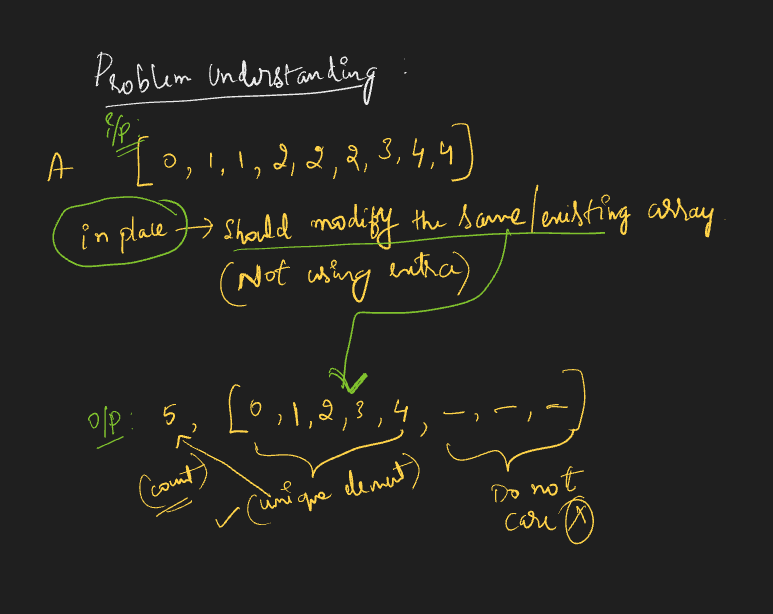 Problem Understanding :
i/p:
A [0, 1, 1, 2, 2, 2, 3, 4, 4]
in place → Should modify the same/existing array.
(Not using extra)
O/P: 5, [0, 1, 2, 3, 4, –, –, –]
(count) ✓ (unique element) Do not
care X